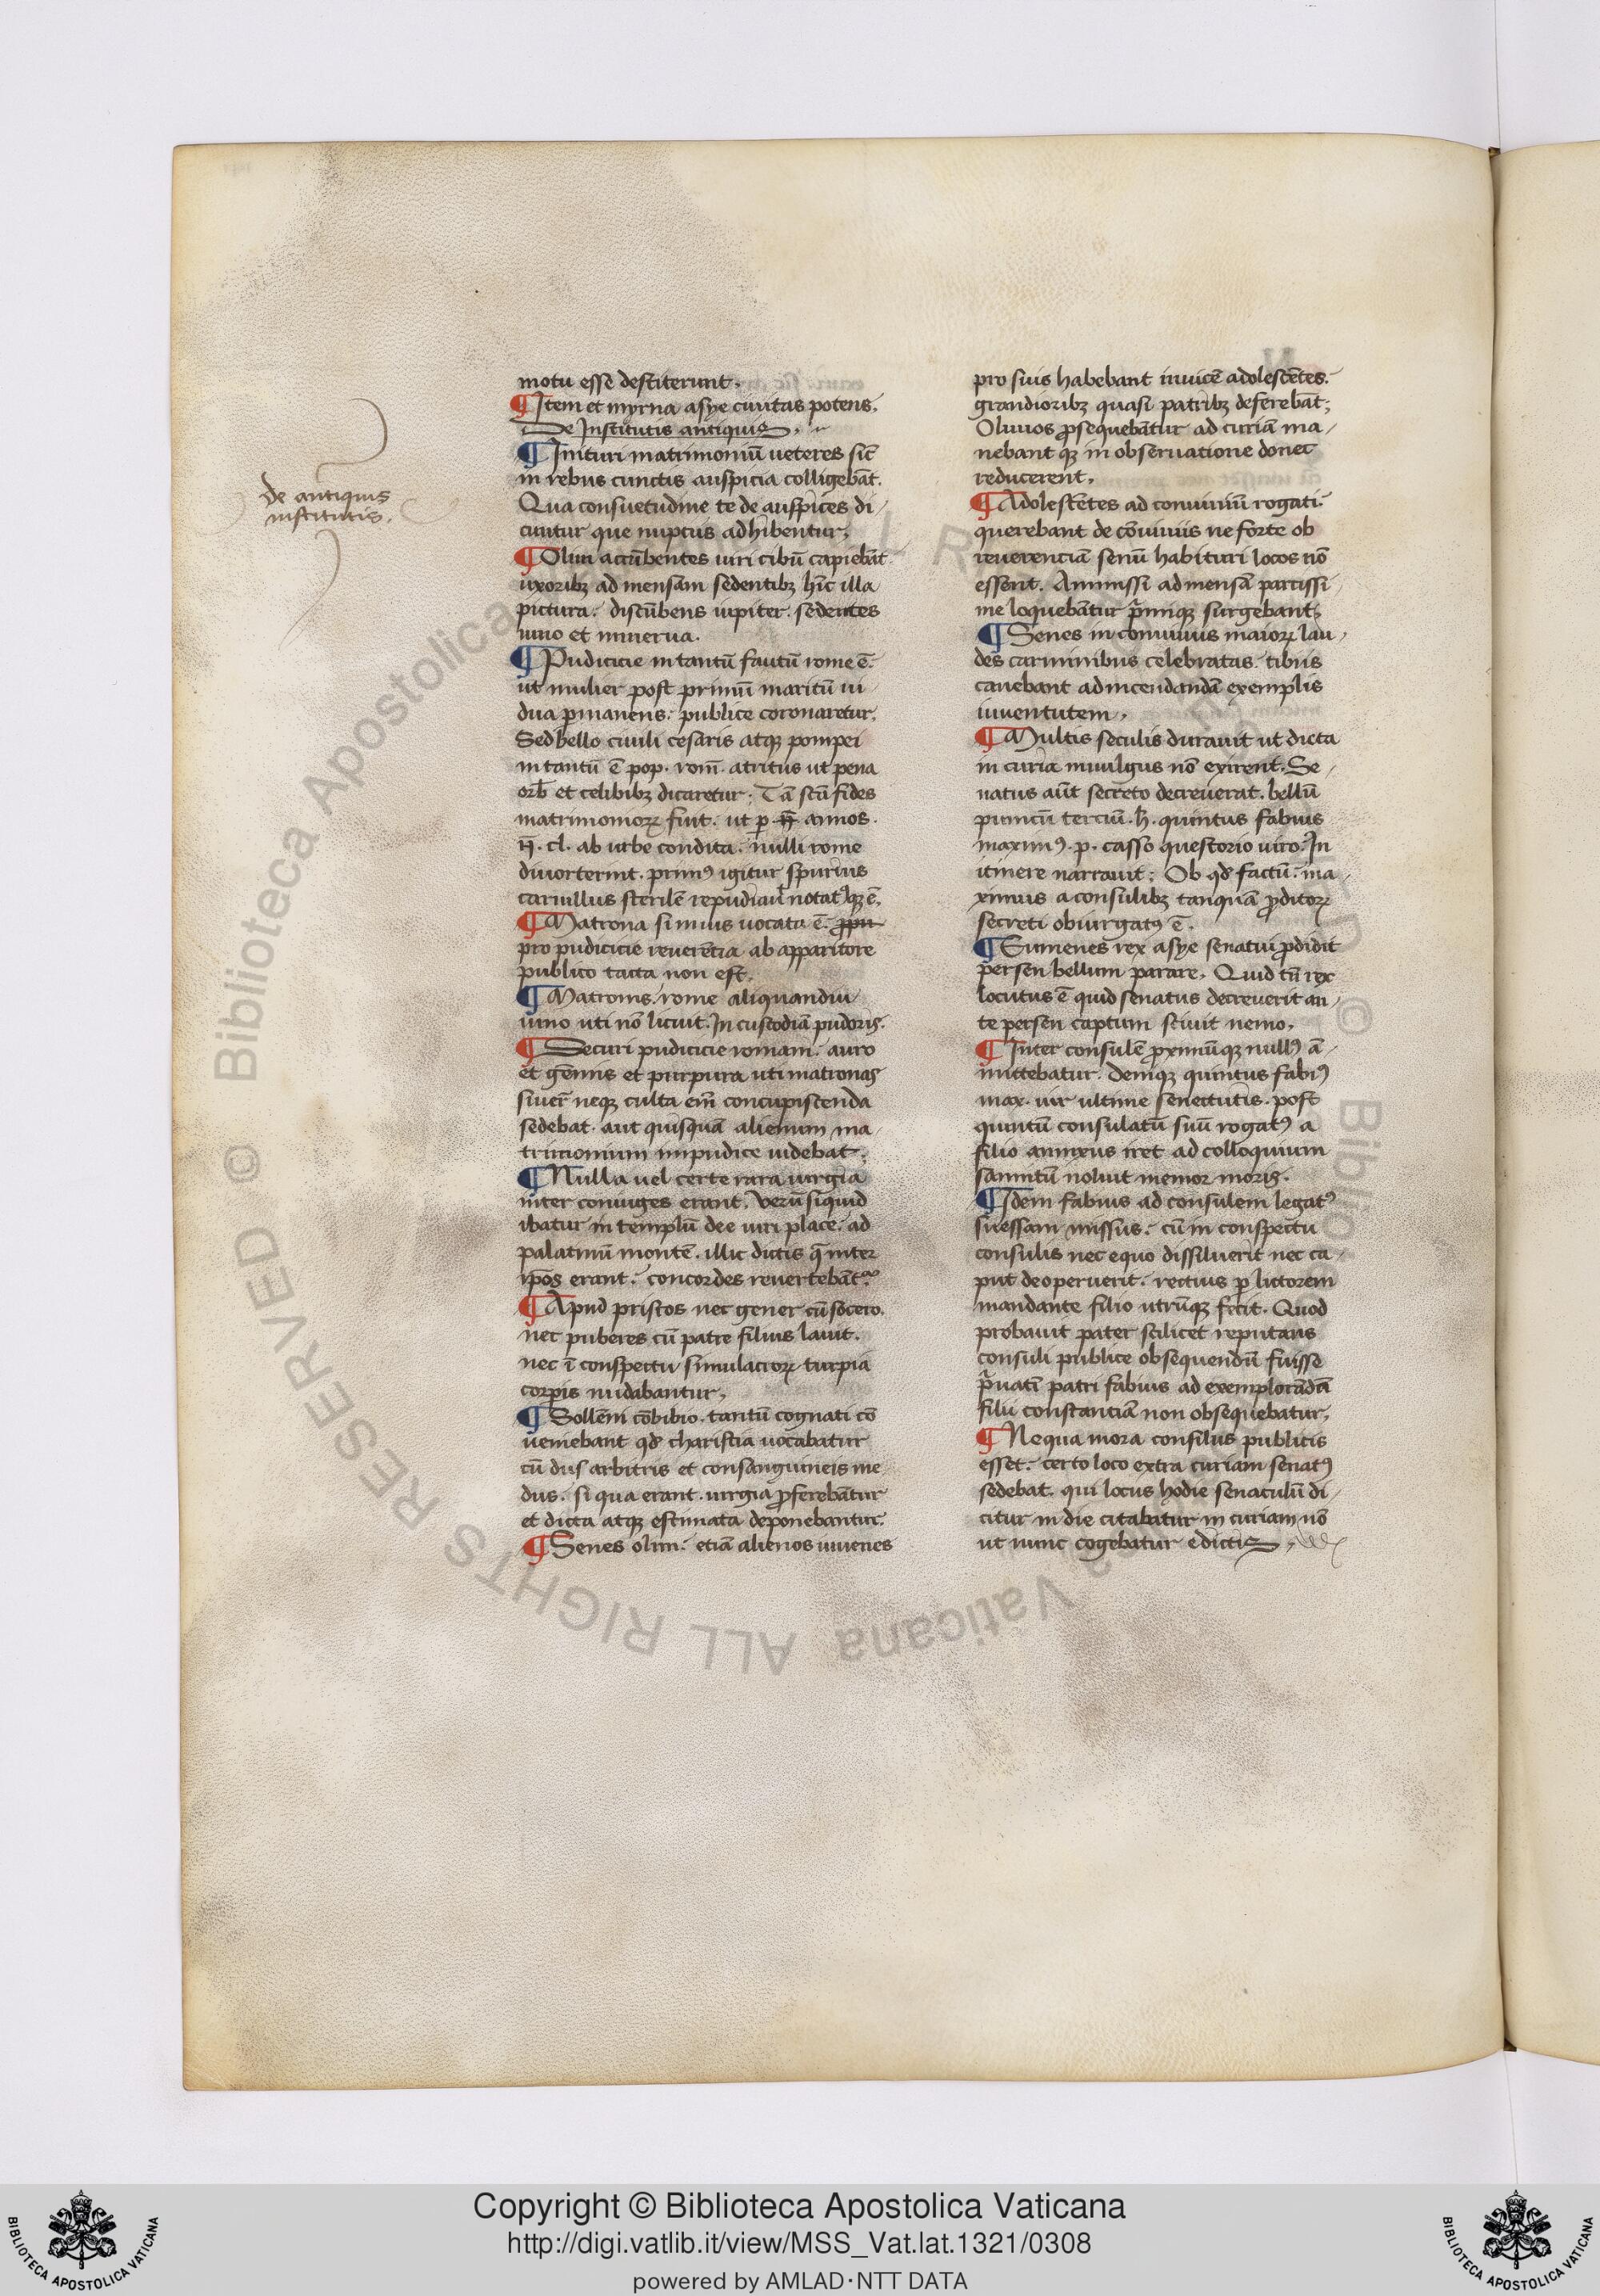 motu esse destiterunt.
¶ Item et myrna asye civitas potens.
De Institutis antiquis.
¶ Inituri matrimoniū ueteres sic̄
in rebus cunctis auspicia colligebāt.
Qua consuetudine te de auspices di
cuntur que nupciis adhibentur.
¶ Olim accūbentes uiri cibū capiebāt
uxoribꝫ ad mensam sedentibꝫ hīc illa
pictura. discūbens iupiter. sedentes
iuno et minerua.
¶ Pudicicie in tantū fautū rome ē.
ut mulier post primū maritū ui
dua ꝑmanens. publice coronaretur.
Sed bello ciuili cesaris atqꝫ pompei
in tantū ē pop. rom̄. atritus ut pena
orb̄ et celibibꝫ dicaretur. Tā scā fides
matrimonioꝝ fuit. ut ꝑ annos.
cl. ab urbe condita. nulli rome
diuorterint. primꝰ igitur spurius
caruillus sterilē repudiauit notatꝰqꝫ ē.
¶ Matrona si in ius uocata ē.
pro pudicicie reuerētia ab apparitore
publico tacta non est.
¶ Matronis. rome aliquandiu
uino uti nō licuit. In custodiā pudoris.
¶ Securi pudicicie romani. auro
et gēmis et purpura uti matronas
siuer̄ neqꝫ culta em̄ concupiscenda
sedebat. aut quisquā alienum ma
trimonium impudice uidebat.
¶ Nulla uel certe rara iurgia
inter coniuges erant. Verū siquid
ibatur in templū dee uiri place. ad
palatinū montē. illic dictis q̄ inter
ip̄os erant. concordes reuertebāt᷑.
¶ Apud priscos nec gener cū socero.
nec puberes cū patre filius lauit.
nec ī conspectu simulacroꝝ turpia
corꝑis nudabantur.
¶ Sollēni cōbibio. tantū cognati cō
ueniebant qd̄ charistia uocabatur
cū dus arbitris et consanguineis me
dus. si qua erant. iurgia ꝓferebātur
et dicta atqꝫ estimata deponebantur.
¶ Senes olim. etiā alienos iuuenes
de antiquis
institutis.
pro suis habebant inuicē adolescētes.
grandioribꝫ quasi patribꝫ deferebāt.
Quos ꝓsequebātur ad curiā ma
nebant qꝫ in obseruatione donec
reducerent.
¶ Adolescētes ad conuiuiū rogati.
querebant de cōuiuiis ne forte ob
reuerenciā seniū habituri locos nō
essent. Ammissi ad mensā parcissi
me loquebātur p̄mi qꝫ surgebant.
¶ Senes in conuiuiis maioꝝ lau
des carminibus celebratas. tibiis
canebant ad incendandā exemplis
iuuentutem.
¶ Multis seculis durauit ut dicta
in curia in uulgus nō exirent. Se
natus aūt secreto decreuerat. bellū
punicū terciū. h̄. quintus fabius
maximꝰ. p. casso questorio uiro. In
itinere narrauit. Ob qd̄ factū. ma
ximus a consulibꝫ tanquā ꝓditoꝝ
secreti obiurgatꝰ ē.
¶ Eumenes rex asye senatui ꝓdidit
persen bellum parare. Quid tn̄ rex
locutus ē quid senatus decreuerit an
te persen captum sciuit nemo.
¶ Inter consulē ꝓximūqꝫ nullꝰ ā
mittebatur. Deniqꝫ quintus fabiꝰ
max. uir ultime senectutis. post
quintū consulatū suū rogatꝰ a
filio annixus iret ad colloquium
samnitū noluit memor moris.
¶ Idem fabius ad consulem legatꝰ
suessam missus. cū in conspectu
consulis nec equo dissiluerit nec ca
put deoperuerit. rectius ꝑ lictorem
mandante filio utrūqꝫ fecit. Quod
probauit pater scilicet reputans
consuli publice obsequendū fuisse
p̄uatī patri fabius ad exemplorādā
filii constanciā non obsequebatur.
¶ Ne qua mora consiliis publicis
esset. certo loco extra curiam senatꝰ
sedebat. qui locus hodie senaculū di
citur in die citabatur in curiam nō
ut nunc cogebatur edictis.
© Biblioteca Apostolica Vaticana ALL RIGHTS RESERVED
Copyright © Biblioteca Apostolica Vaticana
http://digi.vatlib.it/view/MSS_Vat.lat.1321/0308
powered by AMLAD·NTT DATA
BIBLIOTECA APOSTOLICA VATICANA
BIBLIOTECA APOSTOLICA VATICANA